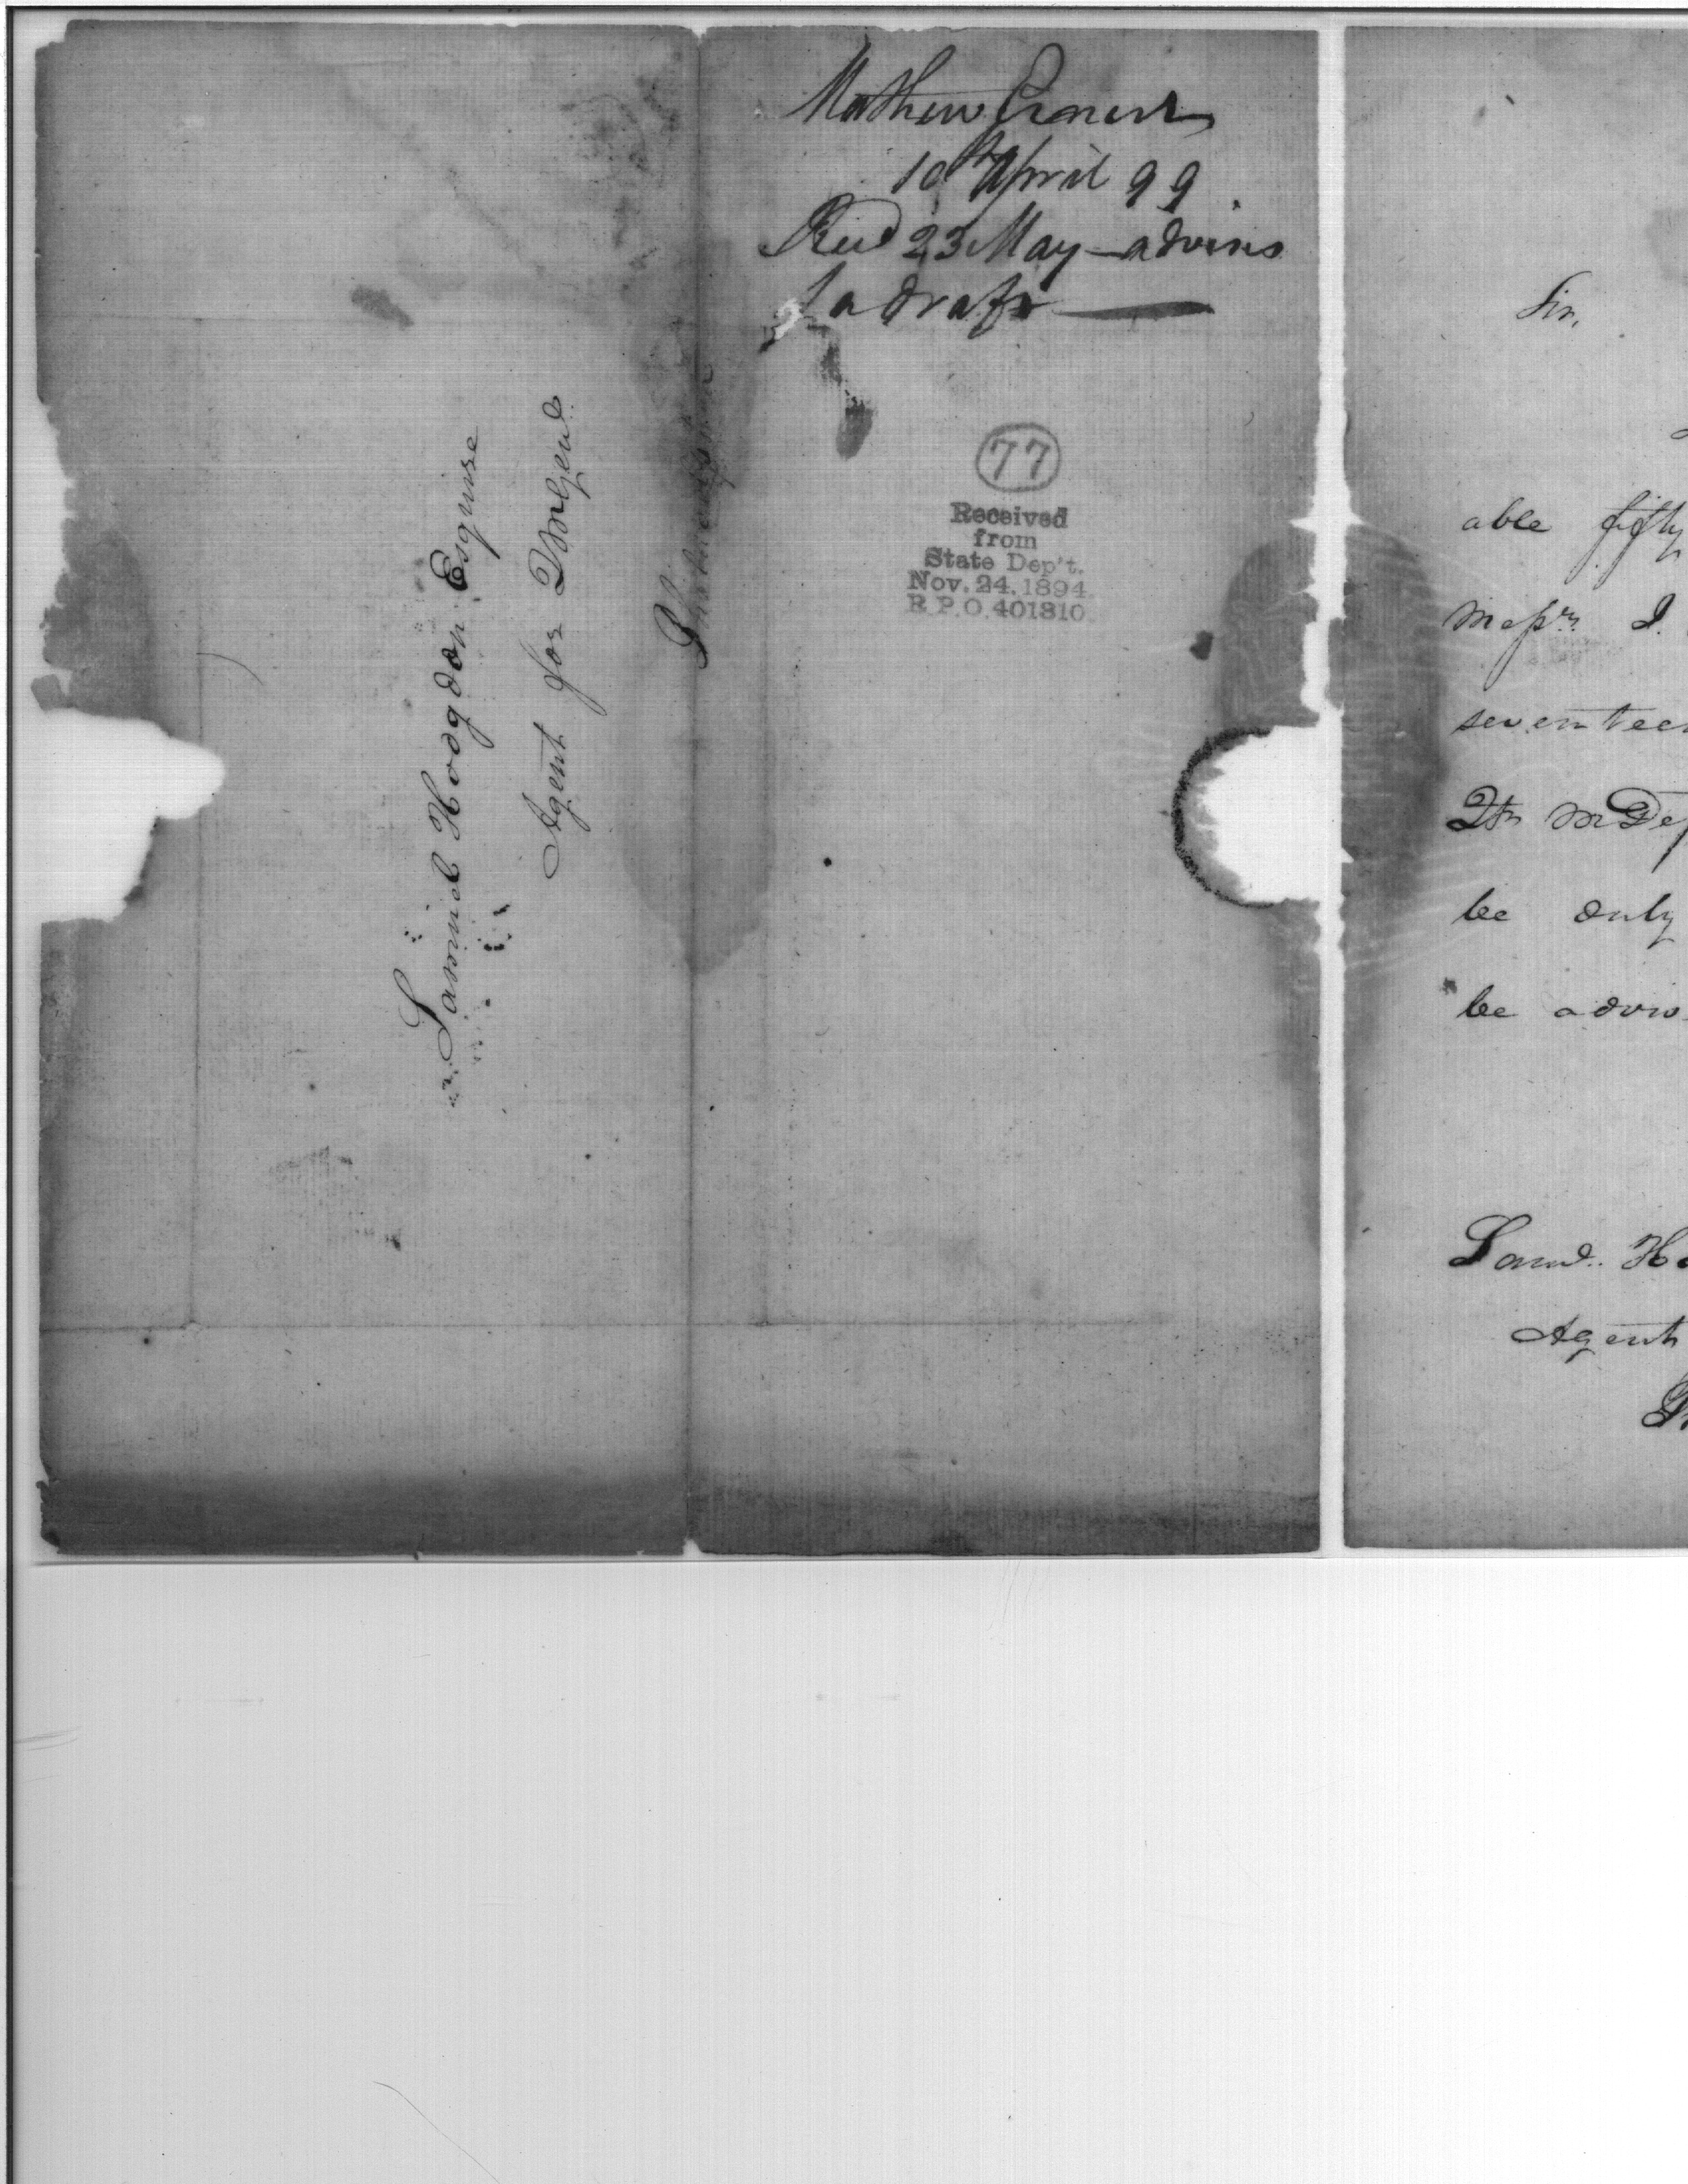 Samuel Hodgdon Esquire
Agent for
Philadelphia
Mathew Ernest
10th April 99
Recd 23 May — advises
of a draft —
77
Received
from
State Dep't.
Nov. 24. 1894.
R.P.O. 401810.
Sir,
able fifty
Messrs. I.
seventeen
Qr M Dep
be duly
be advis
Saml. Ho
Agent
Ph